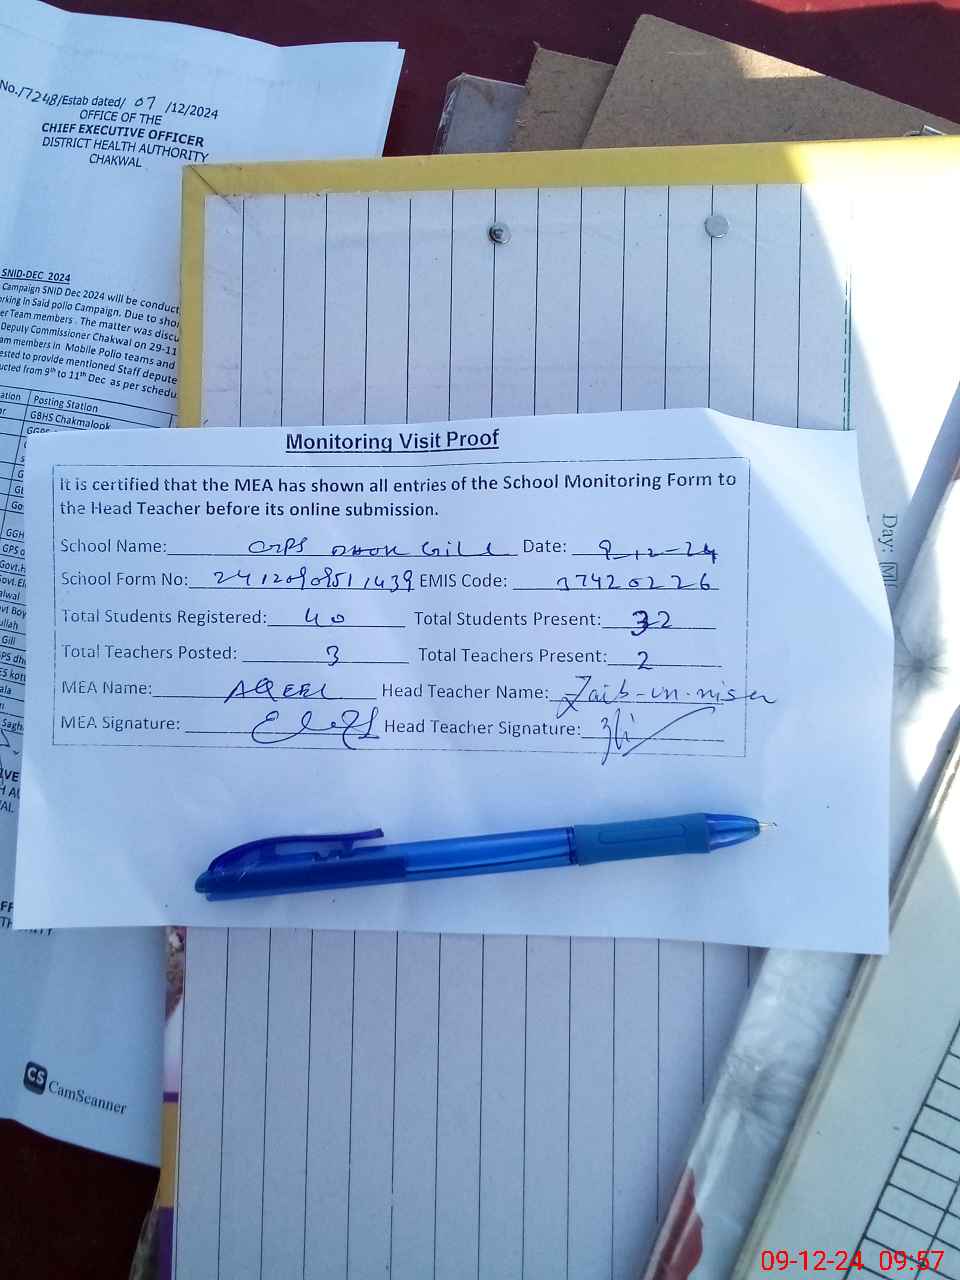 No./7248/Estab dated/ 07 /12/2024
OFFICE OF THE
CHIEF EXECUTIVE OFFICER
DISTRICT HEALTH AUTHORITY
CHAKWAL
SNID-DEC 2024
Campaign SNID Dec 2024 will be conduct
rking in Said polio Campaign. Due to shor
er Team members. The matter was discu
Deputy Commissioner Chakwal on 29-11
am members in Mobile Polio teams and
ested to provide mentioned Staff depute
ucted from 9th to 11th Dec as per schedu
ation Posting Station
GBHS Chakmalook
Monitoring Visit Proof
It is certified that the MEA has shown all entries of the School Monitoring Form to
the Head Teacher before its online submission.
School Name: GPS DHOK Gill Date: 9-12-24
School Form No: EMIS Code: 37420226
Total Students Registered: 40 Total Students Present: 32
Total Teachers Posted: 3 Total Teachers Present: 2
MEA Name: AQEEL Head Teacher Name: Zaib-un-nisa
MEA Signature: Head Teacher Signature:
Day:
CS CamScanner
09-12-24 09:57